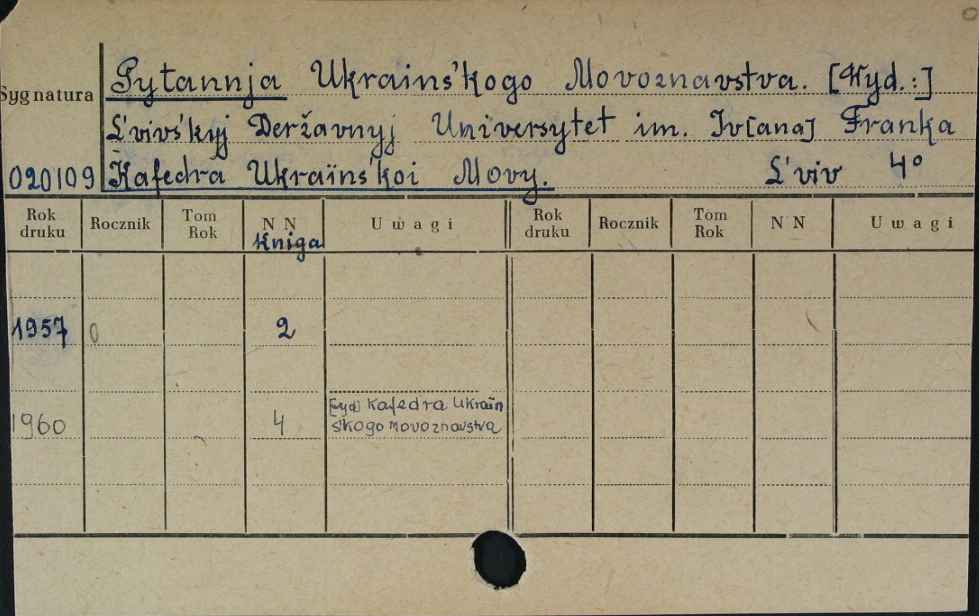 Sygnatura
Pytannja Ukrains'kogo Movoznavstva. [Wyd.:]
L'vivs'kyj Deržavnyj Universytet im. Iv[ana] Franka
020109 Kafedra Ukraïns'koi Movy. L'viv 4°
Rok druku Rocznik Tom Rok NN Uwagi Rok druku Rocznik Tom Rok NN Uwagi
Kniga
1957 0 2
[wyd] Kafedra Ukraïn
1960 4 s'kogo movoznavstva